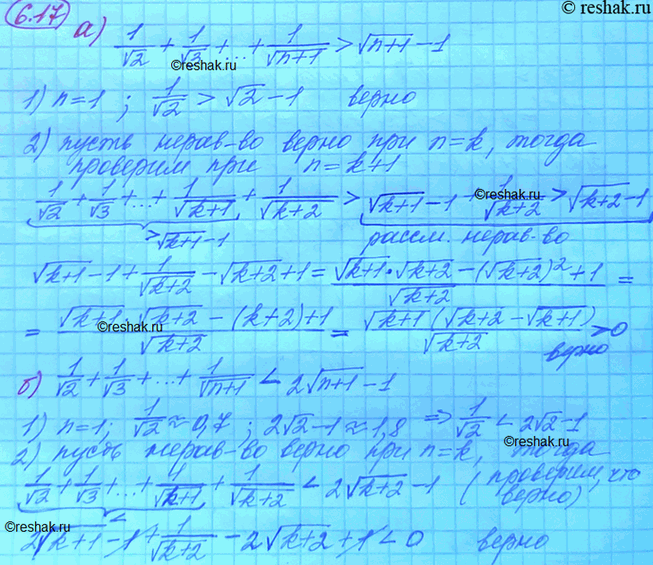 © reshak.ru
6.17 а) 1/√2 + 1/√3 + ... + 1/√(n+1) > √(n+1) − 1
©reshak.ru
1) n=1 ; 1/√2 > √2 − 1 верно
2) пусть нерав-во верно при n=k, тогда
проверим при n=k+1
1/√2 + 1/√3 + ... + 1/√(k+1) + 1/√(k+2) > √(k+1) − 1 + 1/√(k+2) > √(k+2) − 1
©reshak.ru
>√(k+1) − 1 рассм. нерав-во
√(k+1) − 1 + 1/√(k+2) − √(k+2) + 1 = (√(k+1) * √(k+2) − (√(k+2))² + 1)/√(k+2) =
= (√(k+1) · √(k+2) − (k+2) + 1)/√(k+2) = √(k+1) (√(k+2) − √(k+1))/√(k+2) > 0
©reshak.ru
верно
б) 1/√2 + 1/√3 + ... + 1/√(n+1) < 2√(n+1) − 1
1) n=1; 1/√2 ≈ 0,7 ; 2√2 − 1 ≈ 1,8 ⇒ 1/√2 < 2√2 − 1
2) пусть нерав-во верно при n=k, тогда
1/√2 + 1/√3 + ... + 1/√(k+1) + 1/√(k+2) < 2√(k+2) − 1 (проверим, что
верно)
©reshak.ru
<
2√(k+1) − 1 + 1/√(k+2) − 2√(k+2) + 1 < 0 верно
©reshak.ru